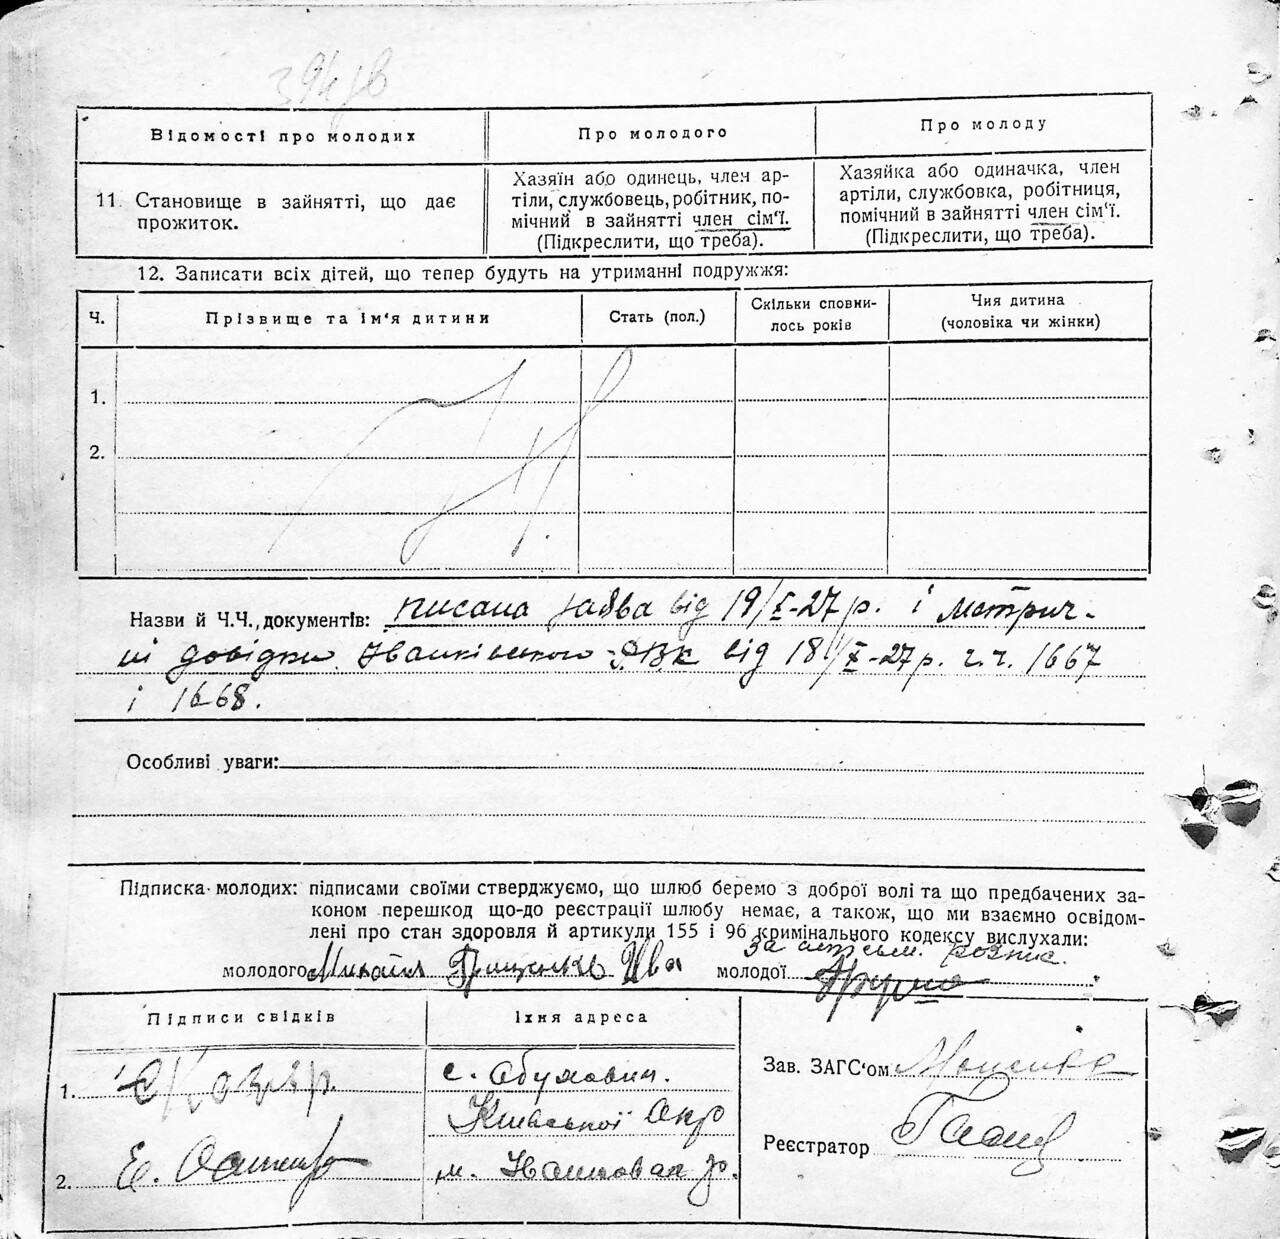 394 зв
Відомості про молодих
Про молодого
Про молоду
11. Становище в зайнятті, що дає
прожиток.
Хазяїн або одинець, член ар-
тіли, службовець, робітник, по-
мічний в зайнятті член сім'ї.
(Підкреслити, що треба).
Хазяйка або одиначка, член
артіли, службовка, робітниця,
помічний в зайнятті член сім'ї.
(Підкреслити, що треба).
12. Записати всіх дітей, що тепер будуть на утриманні подружжя:
Ч.
Прізвище та ім'я дитини
Стать (пол.)
Скільки сповни-
лось років
Чия дитина
(чоловіка чи жінки)
1.
2.
Назви й Ч.Ч., документів: писана заява від 19/X-27 р. і метрич-
ні довідки Іванківського РВК від 18/X-27 р. ч.ч. 1667
і 1668.
Особливі уваги:
Підписка молодих: підписами своїми стверджуємо, що шлюб беремо з доброї волі та що предбачених за-
коном перешкод що-до реєстрації шлюбу немає, а також, що ми взаємно освідом-
лені про стан здоровля й артикули 155 і 96 кримінального кодексу вислухали:
молодого Михайло Грищенко
молодої
за розпис.
Підписи свідків
Їхня адреса
1.
с. Обуховичі
Київської Окр
2. Є.
м.
Зав. ЗАГС'ом
Реєстратор